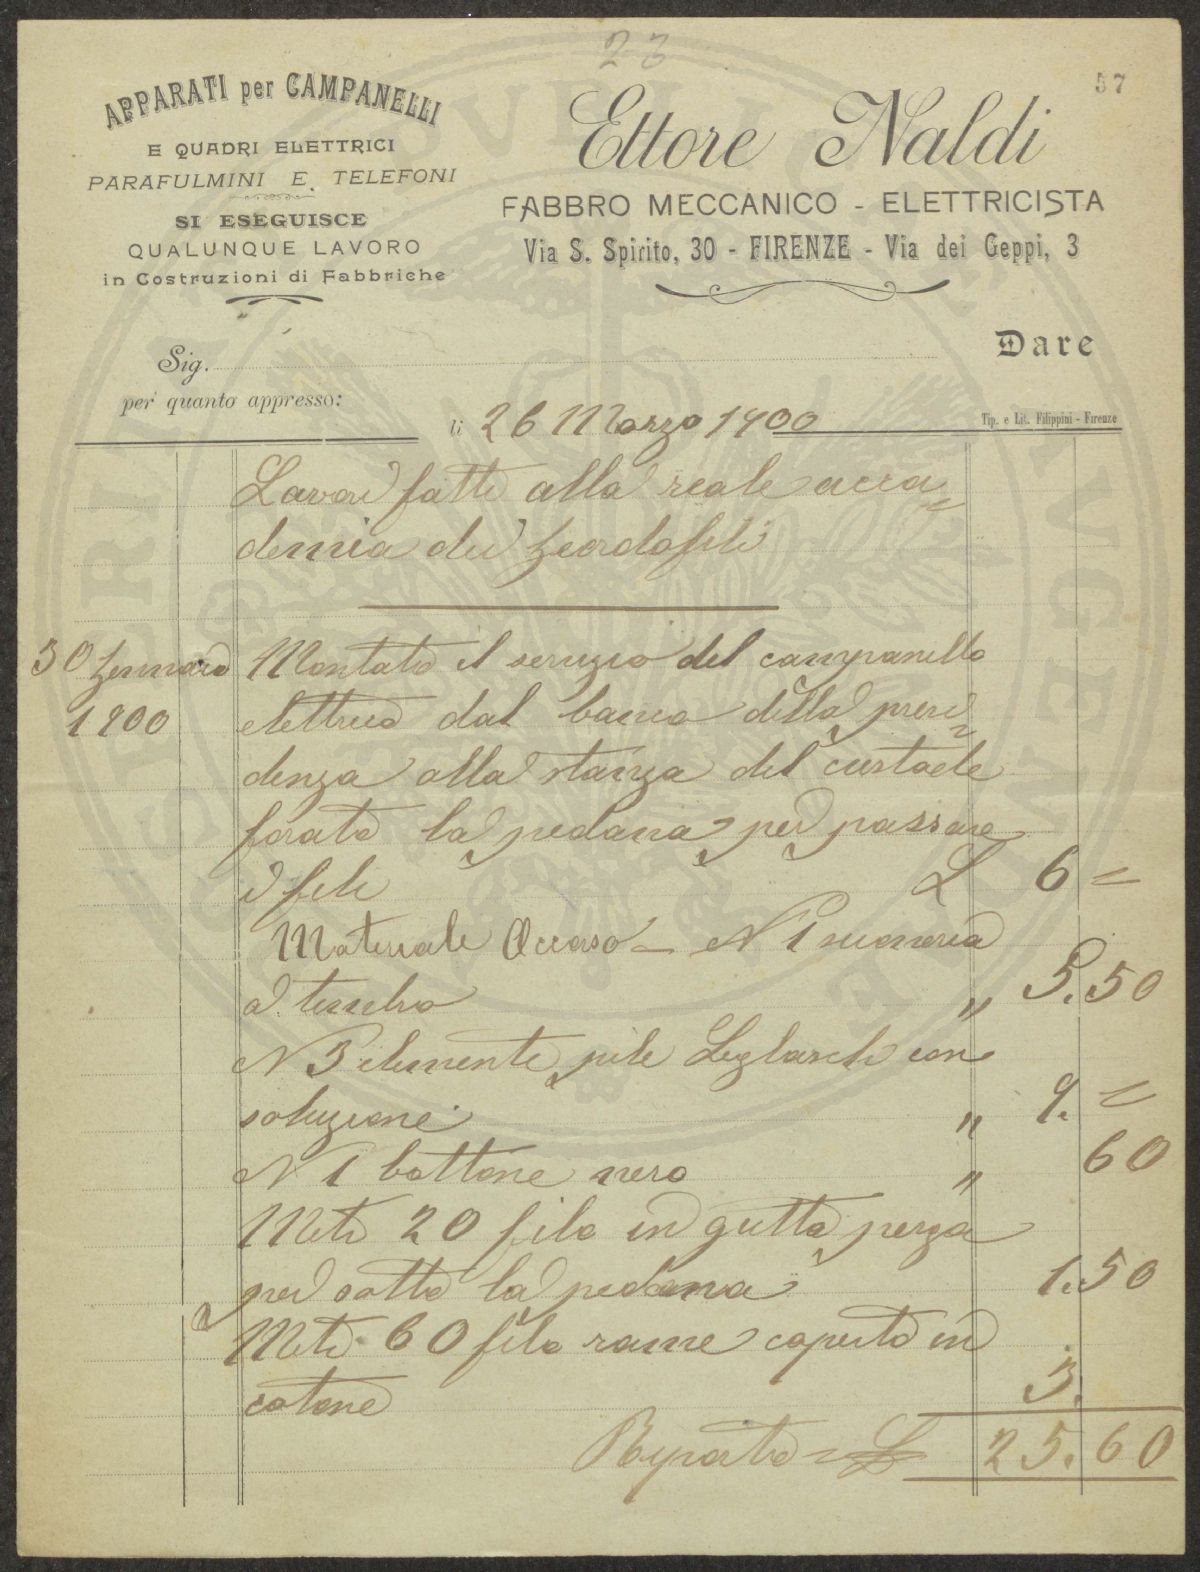 23
57
APPARATI per CAMPANELLI
E QUADRI ELETTRICI
PARAFULMINI E TELEFONI
SI ESEGUISCE
QUALUNQUE LAVORO
in Costruzioni di Fabbriche
Ettore Naldi
FABBRO MECCANICO - ELETTRICISTA
Via S. Spirito, 30 - FIRENZE - Via dei Geppi, 3
Sig. Dare
per quanto appresso:
li 26 Marzo 1900
Tip. e Lit. Filippini - Firenze
Lavori fatti alla reale acca=
demia dei Geordofili
30 Gennaio Montato il servizio del campanello
1900 elettrico dal banco della presi=
denza alla stanza del custode
forato la pedana per passare
i fili L 6 =
Materiale Occorso - N 1 suoneria
a timbro " 5.50
N 3 elementi pile Leglasch con
soluzione " 9. =
N 1 bottone nero " 60
Metri 20 filo in gutta perga
per sotto la pedana 1.50
Metri 60 filo rame coperto in
cotone 3.
Riporto = L 25.60